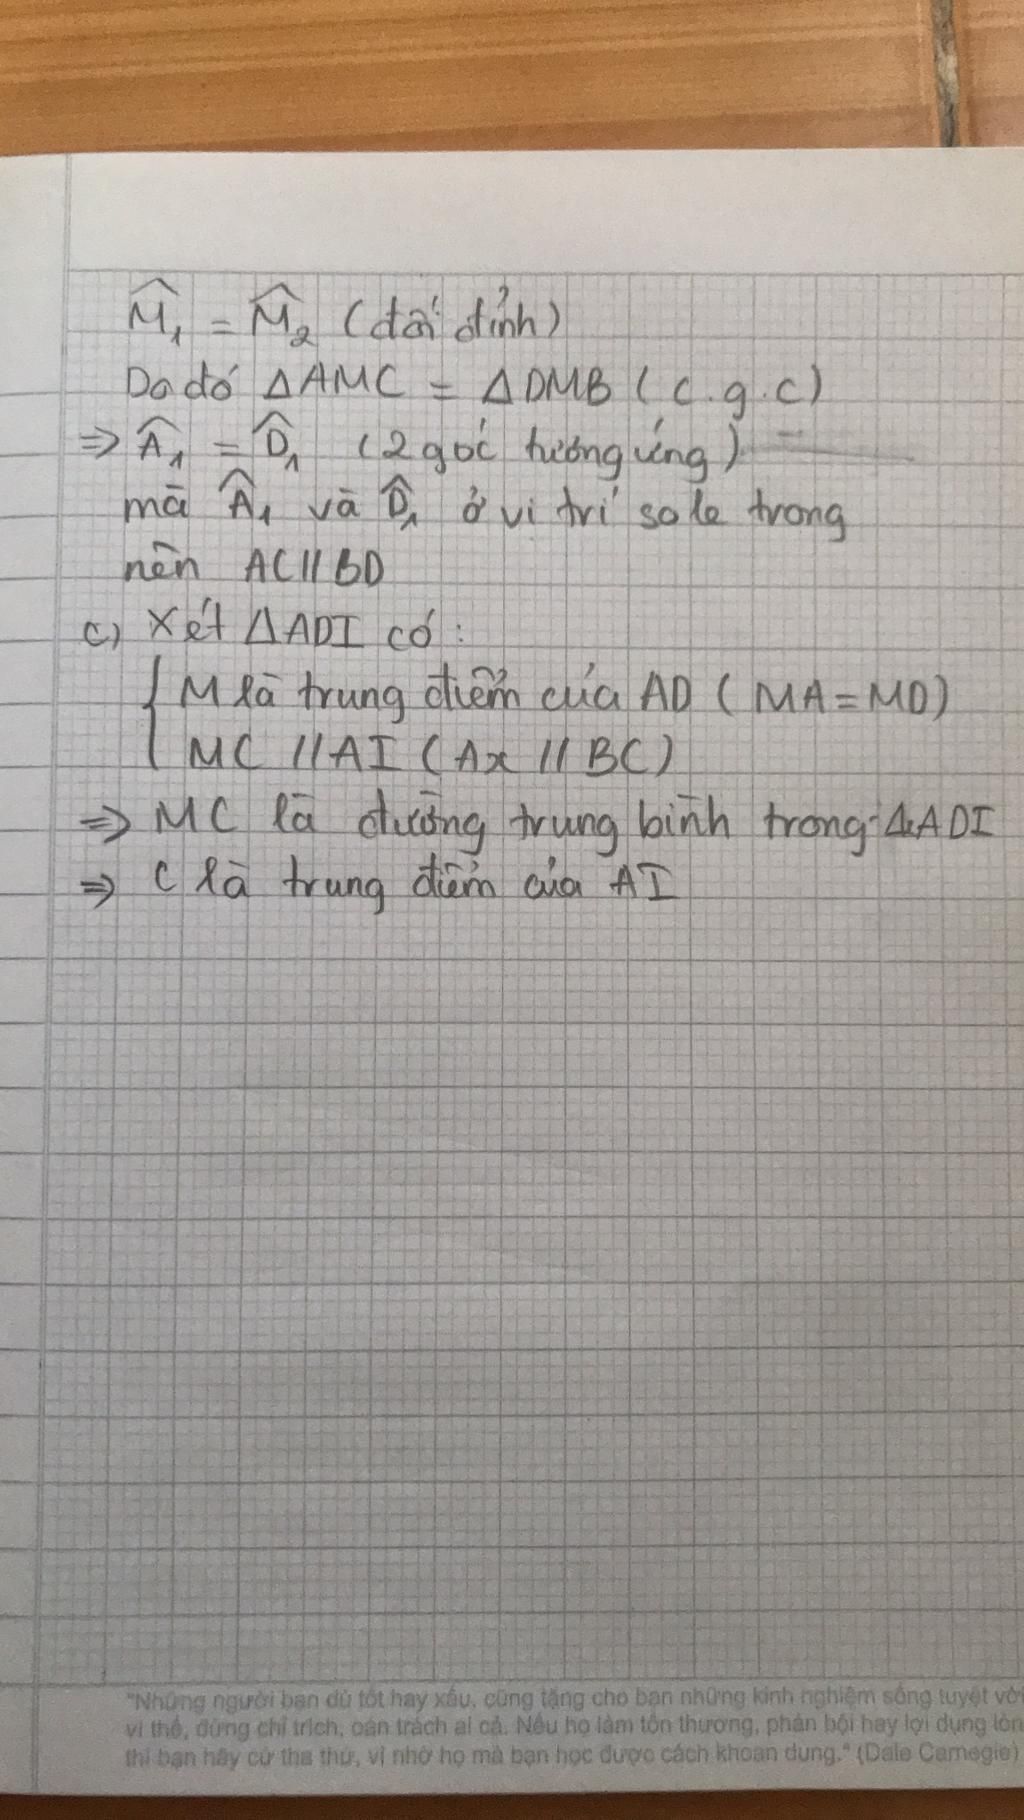 M̂₁ = M̂₂ (đối đỉnh)
Do đó ΔAMC = ΔDMB (c.g.c)
⇒ Â₁ = D̂₁ (2 góc tương ứng)
mà Â₁ và D̂₁ ở vị trí so le trong
nên AC // BD
c) Xét ΔADI có:
M là trung điểm của AD (MA = MD)
MC // AI (Ax // BC)
⇒ MC là đường trung bình trong ΔADI
⇒ C là trung điểm của AI
"Những người bạn dù tốt hay xấu, cũng tặng cho bạn những kinh nghiệm sống tuyệt vời
vì thế, đừng chỉ trích, oán trách ai cả. Nếu họ làm tổn thương, phản bội hay lợi dụng lòn
thì bạn hãy cứ tha thứ, vì nhờ họ mà bạn học được cách khoan dung." (Dale Carnegie)